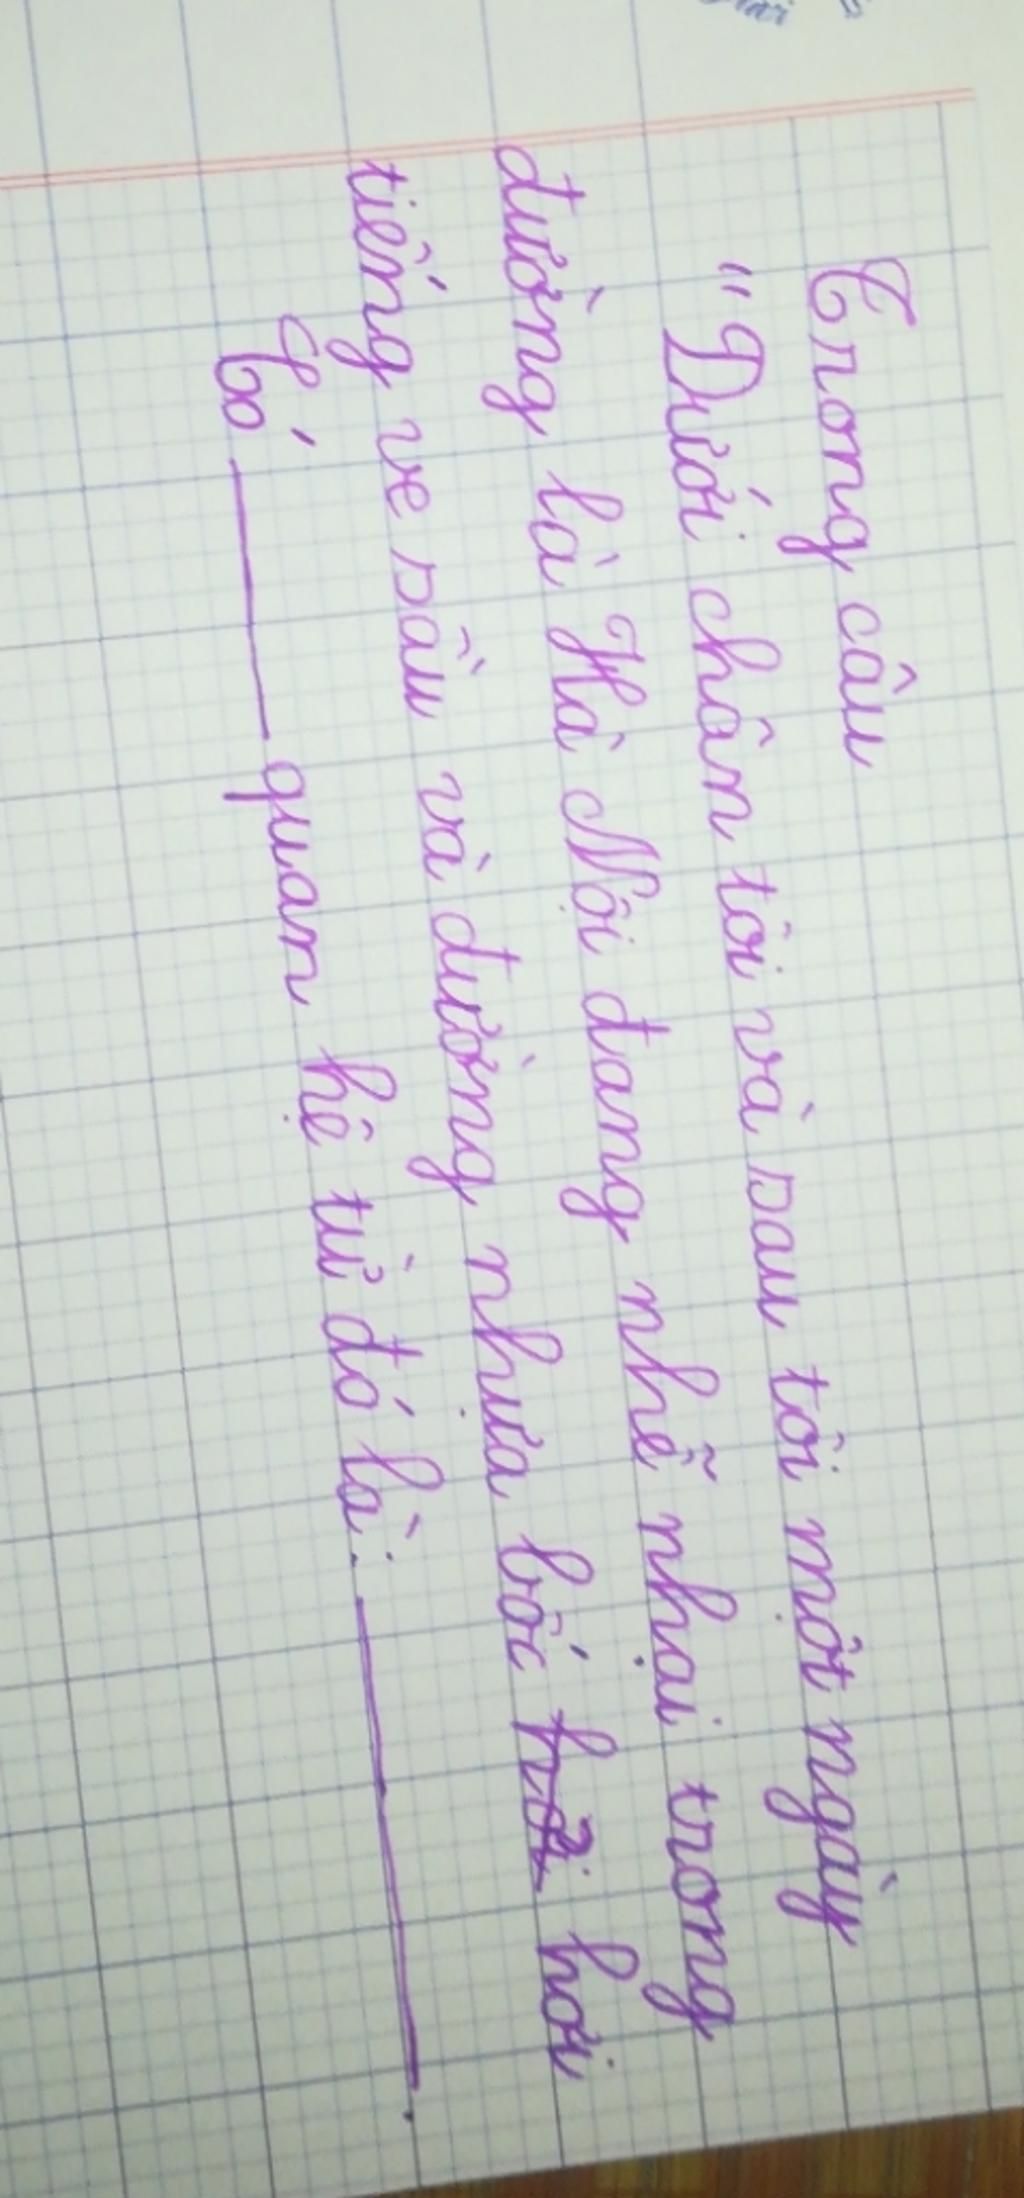 Trong câu
"Dưới chân tôi và sau tôi một ngày
đường là Hà Nội đang nhễ nhại trong
tiếng ve sầu và đường nhựa bốc hơi
Có ______ quan hệ từ đó là: ______.